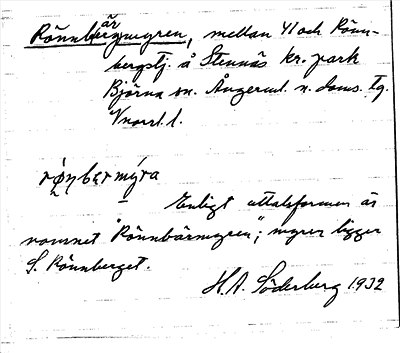 är
Rönnbergmyren, mellan 41 och Rönn-
bergstj. å Stennäs kr. park
Björna sn. Ångerml. n. doms. tg.
Vnorrl. l.
rø̀nbɛrmýra
Enligt uttalsformen är
namnet "Rönnbärmyren"; myren ligger
S. Rönnberget.
H. A. Söderberg 1932